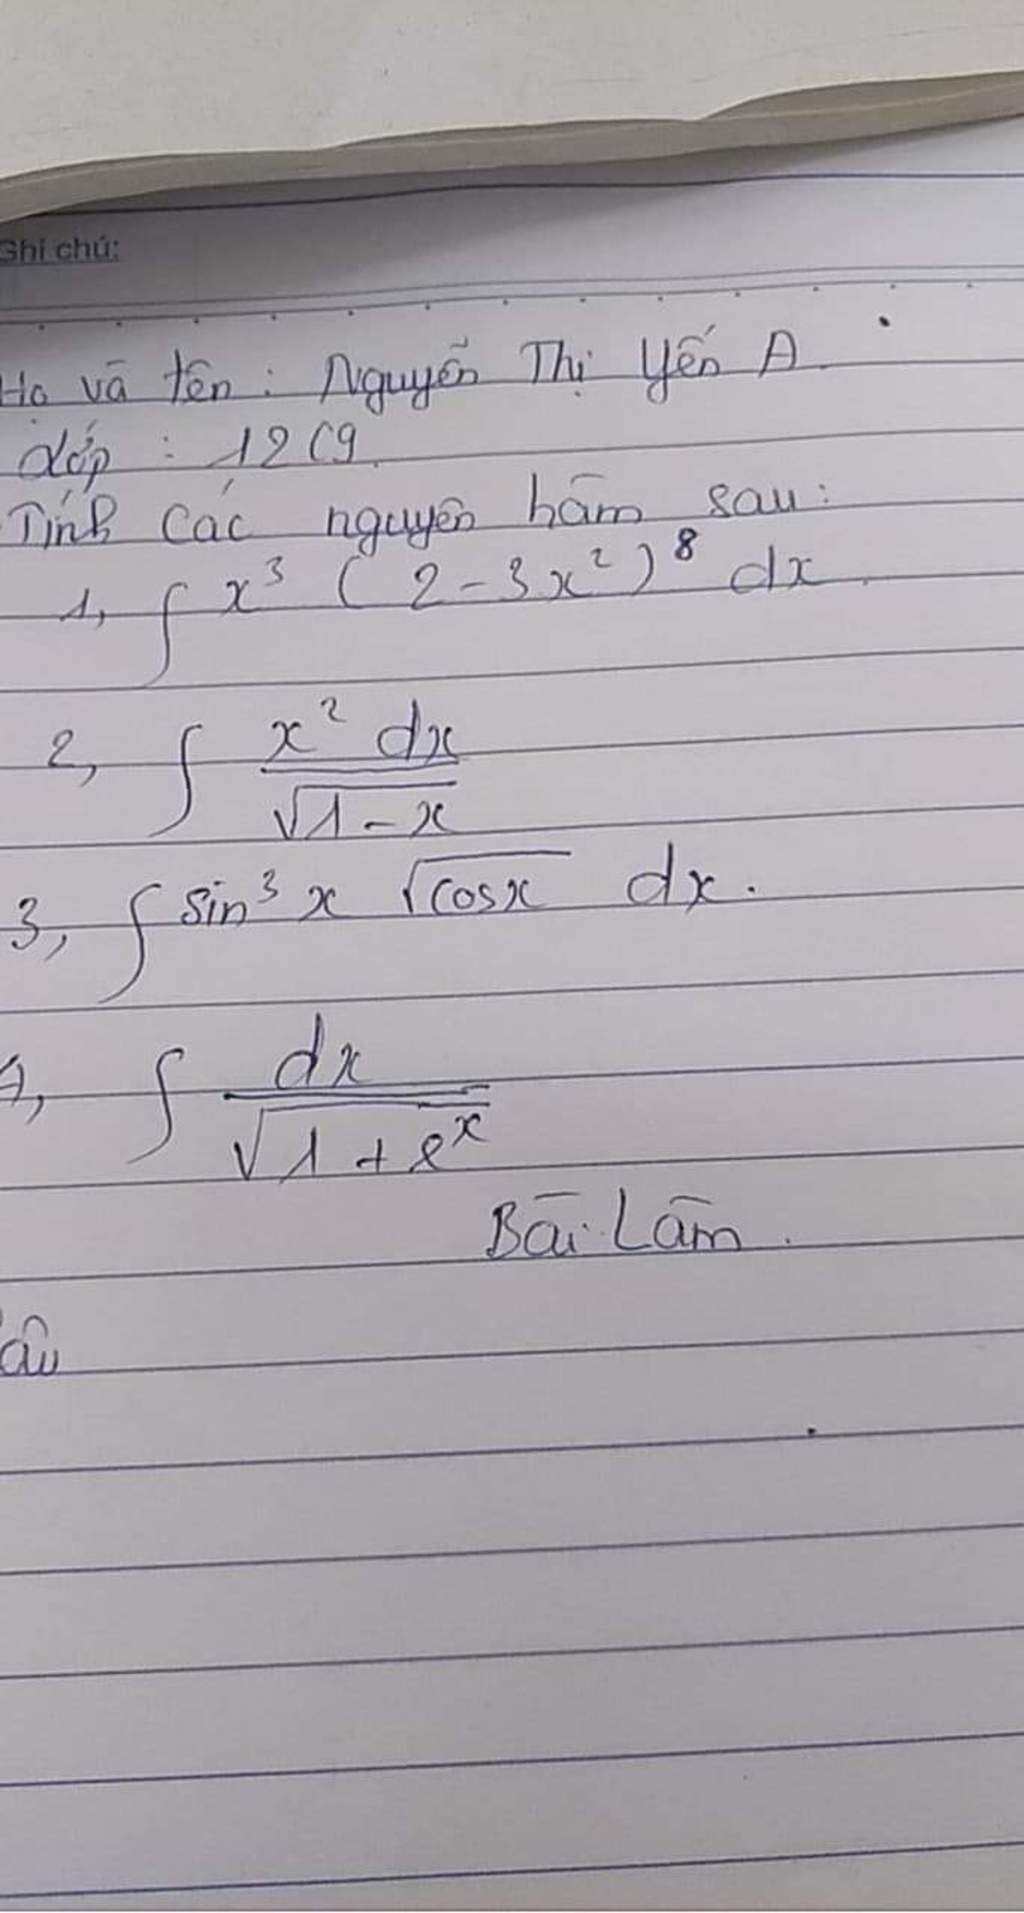 Ghi chú:
Họ và tên : Nguyễn Thị Yến A
Lớp : 12C9
Tính các nguyên hàm sau:
1, ∫ x³ (2-3x²)⁸ dx
2, ∫ x² dx / √(1-x)
3, ∫ sin³x √(cosx) dx.
4, ∫ dx / √(1+e^x)
Bài Làm.